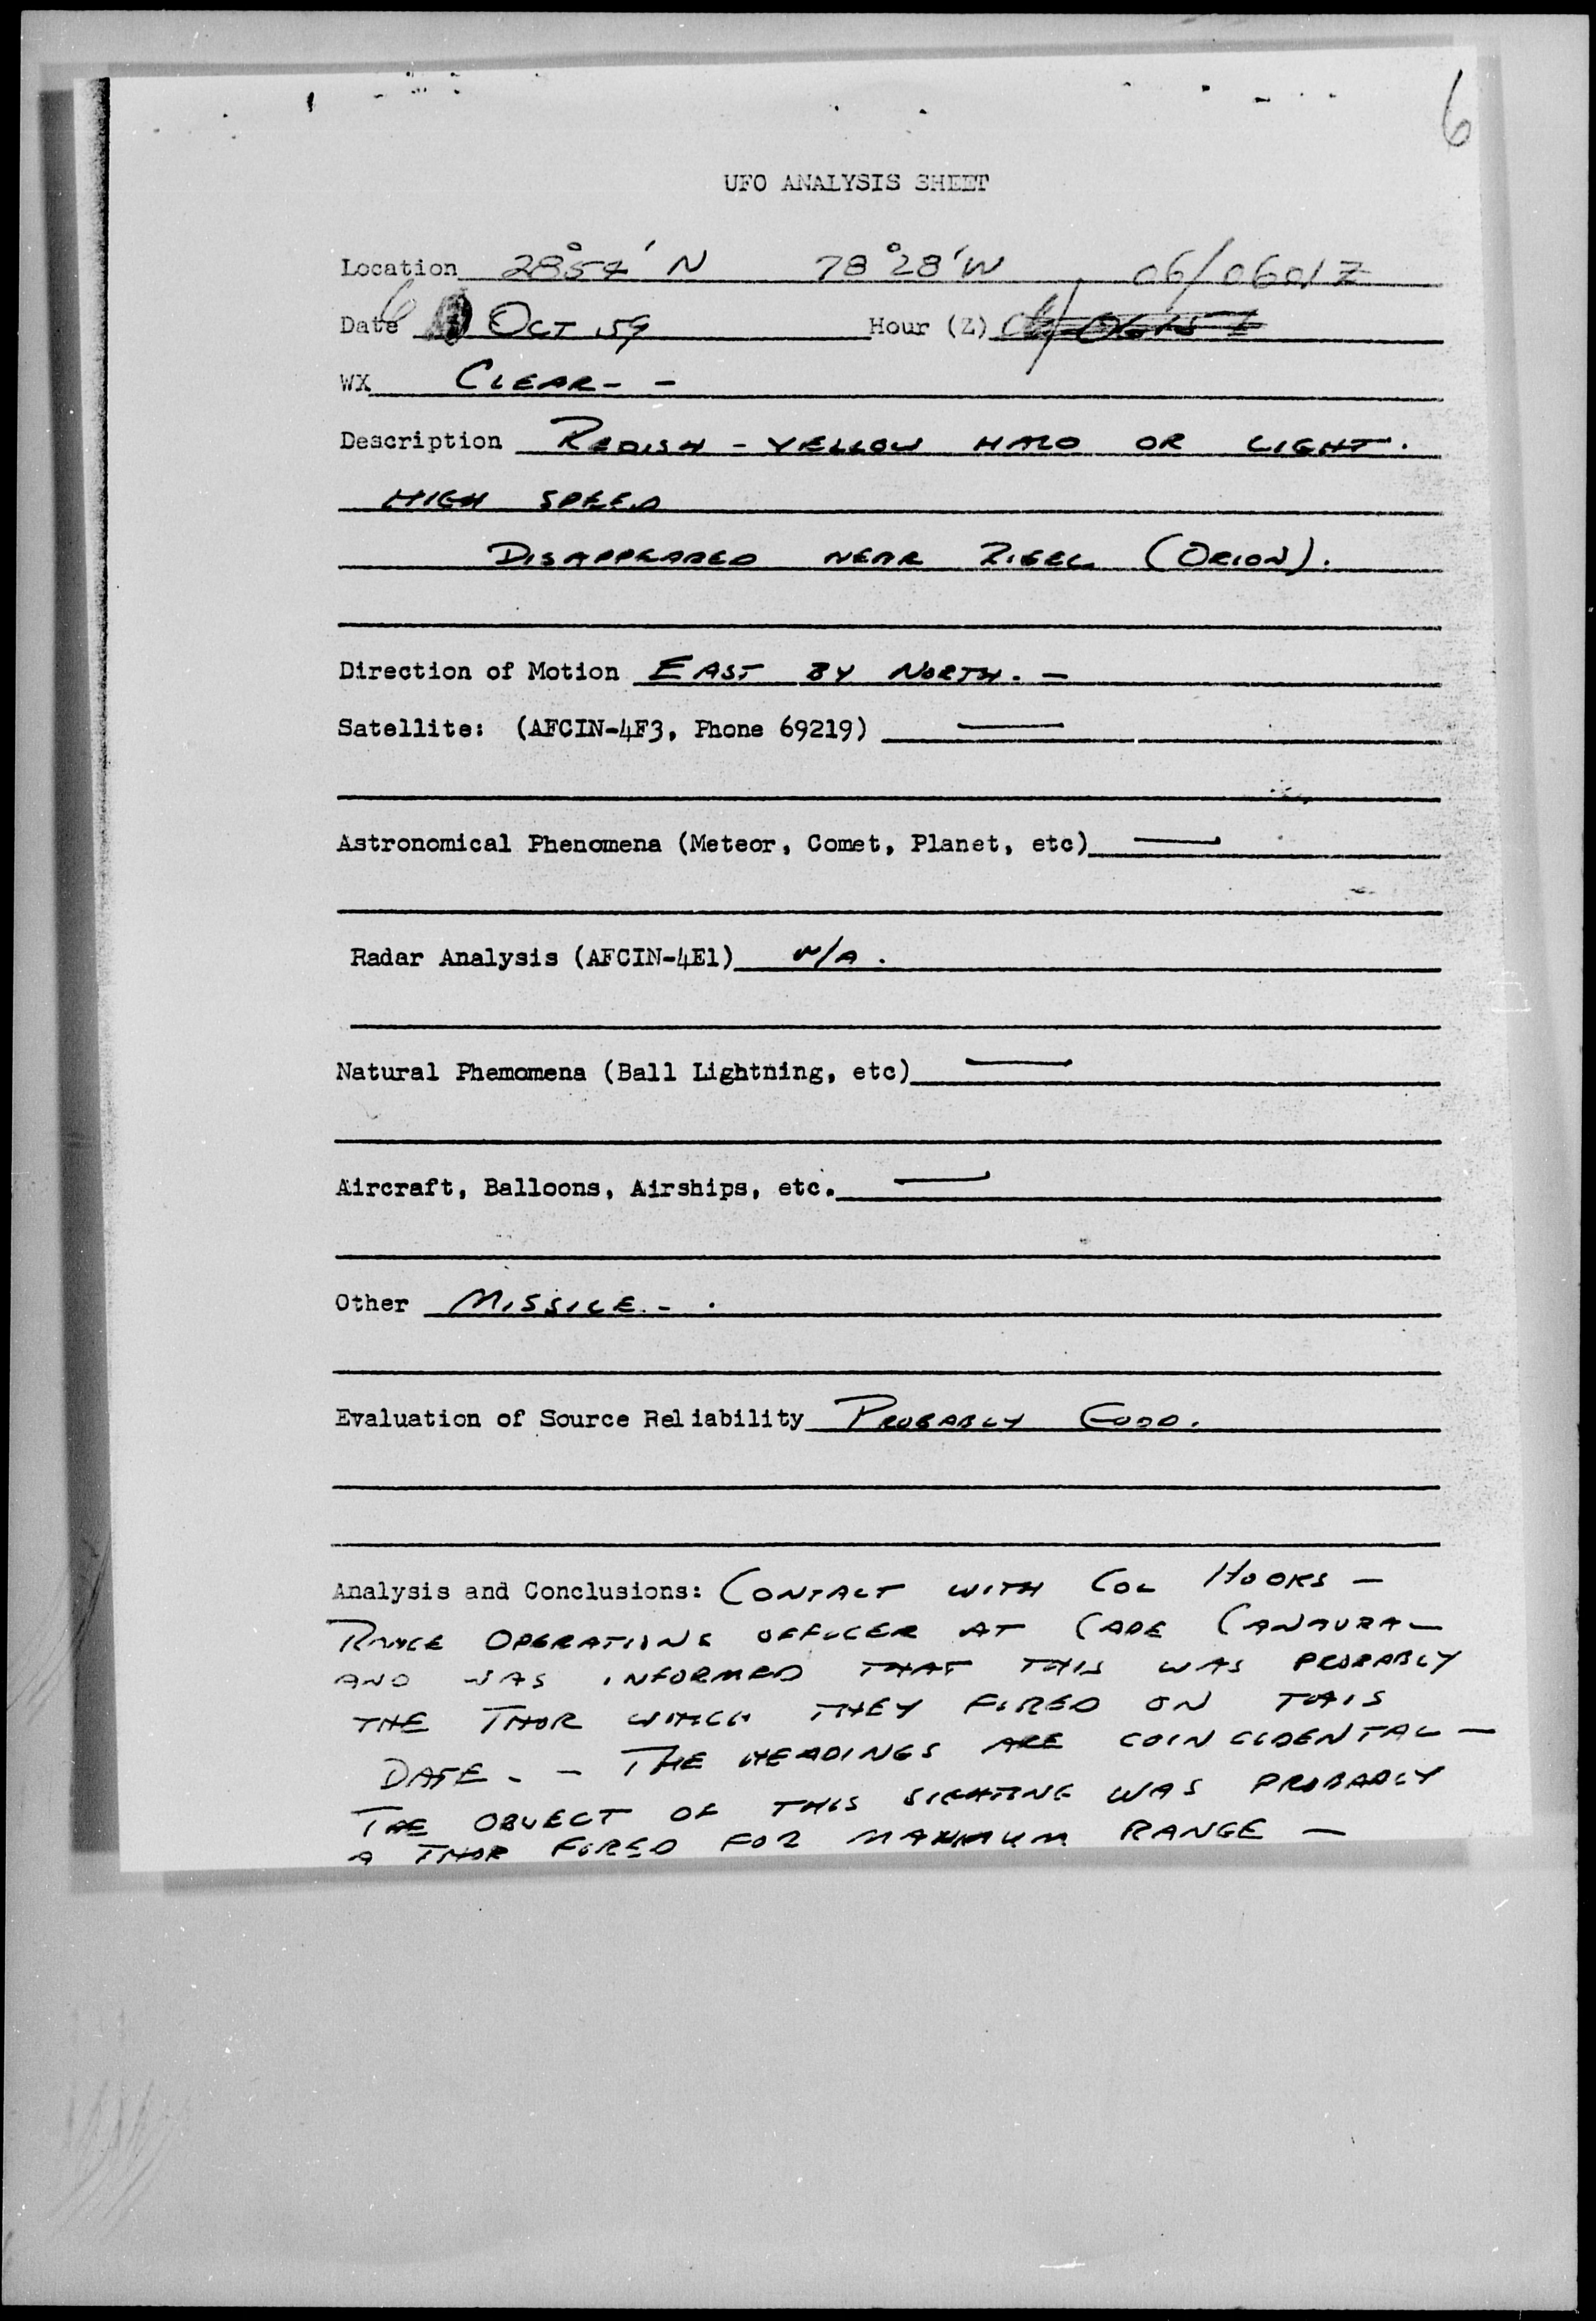 6
UFO ANALYSIS SHEET
Location 28°54' N 78°28'W 06/0601Z
Date 6 OCT 59 Hour (Z)
WX CLEAR - -
Description REDISH - YELLOW HALO OR LIGHT.
HIGH SPEED
DISAPPEARED NEAR RIGEL (ORION).
Direction of Motion EAST BY NORTH. -
Satellite: (AFCIN-4F3, Phone 69219) —
Astronomical Phenomena (Meteor, Comet, Planet, etc) —
Radar Analysis (AFCIN-4E1) N/A.
Natural Phemomena (Ball Lightning, etc) —
Aircraft, Balloons, Airships, etc. —
Other MISSILE - .
Evaluation of Source Reliability PROBABLY GOOD.
Analysis and Conclusions: CONTACT WITH COL HOOKS -
RANGE OPERATIONS OFFICER AT CAPE CANAVRA -
AND WAS INFORMED THAT THIS WAS PROBABLY
THE THOR WHICH THEY FIRED ON THIS
DATE. - THE HEADINGS ARE COINCIDENTAL -
THE OBJECT OF THIS SIGHTING WAS PROBABLY
A THOR FIRED FOR MAXIMUM RANGE -